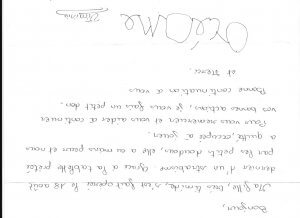 Bonjour,
Ma fille, très timide, s'est fait opérer le 18 août
dernier d'un strabisme. Grâce à la tablette prêtée
par les petits doudous, elle a eu moins peur et nous
a quitté, occupée à jouer.
Pour vous remercier et vous aider à continuer
vos bonnes actions, je vous fais un petit don.
Bonne continuation à vous
et Merci.